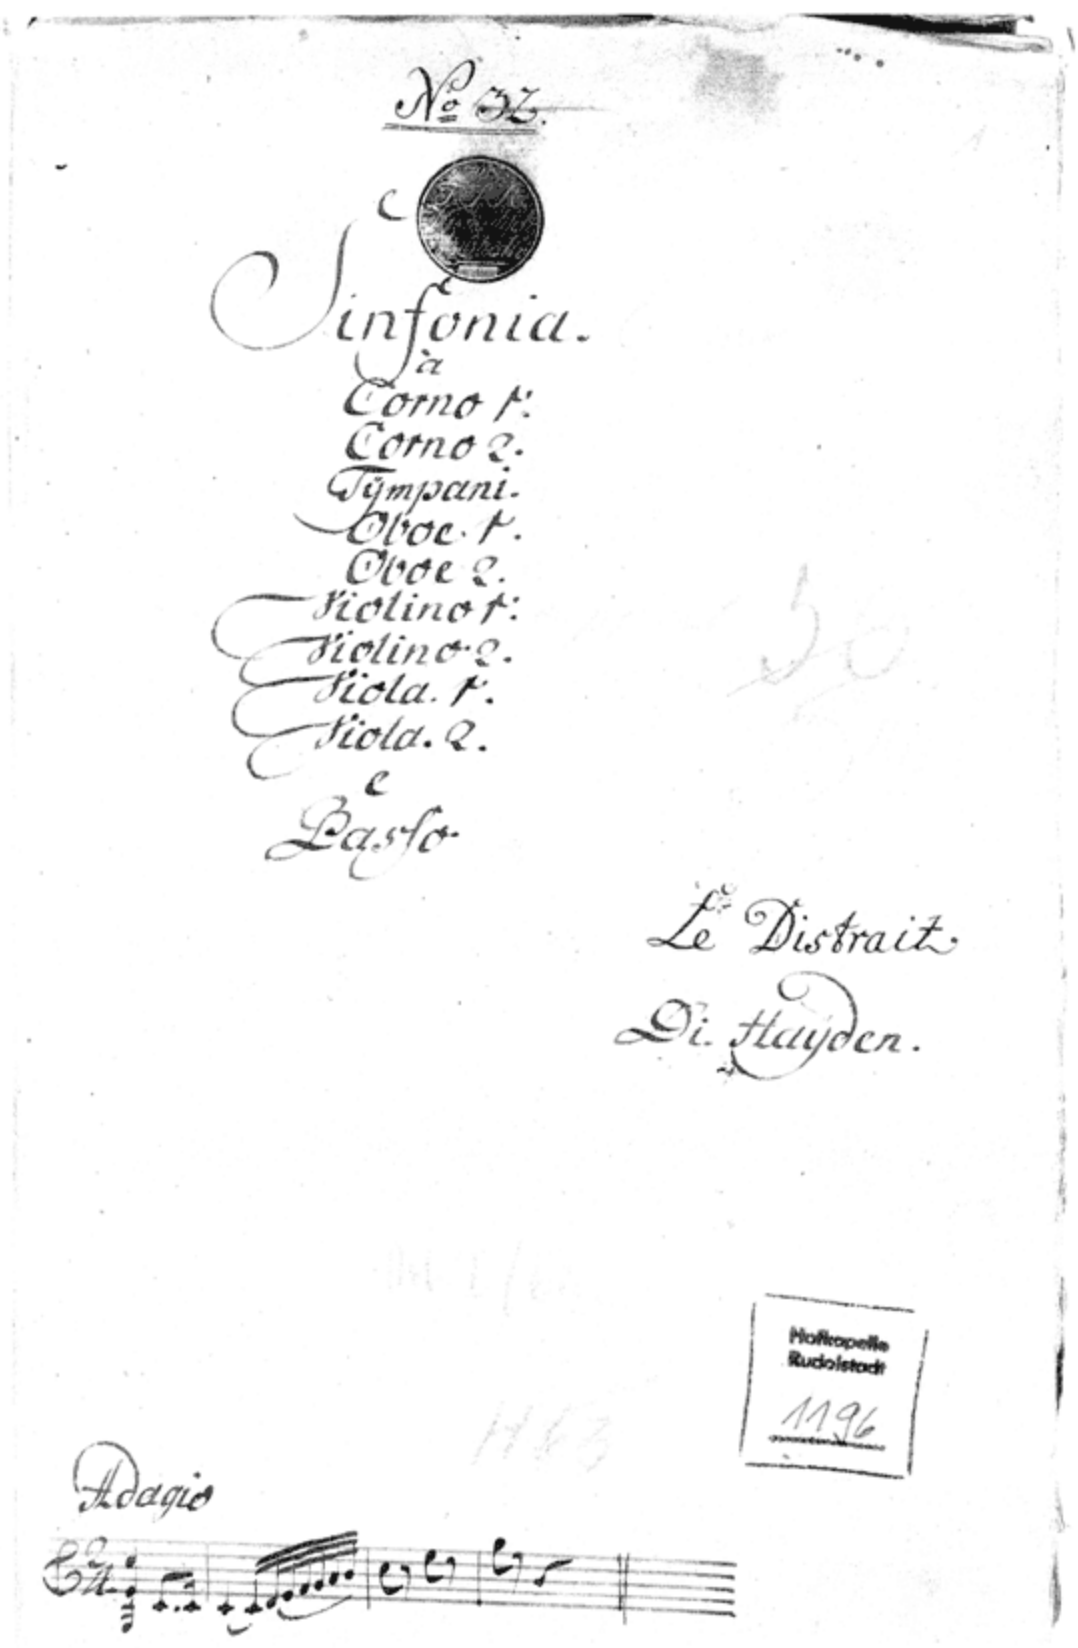 No 32.
Sinfonia.
à
Corno 1.
Corno 2.
Tÿmpani.
Oboe. 1.
Oboe 2.
Violino 1.
Violino 2.
Viola. 1.
Viola. 2.
e
Basso
Le Distrait
Di Hayden.
Hofkapelle
Rudolstadt
1196
Adagio
2
4